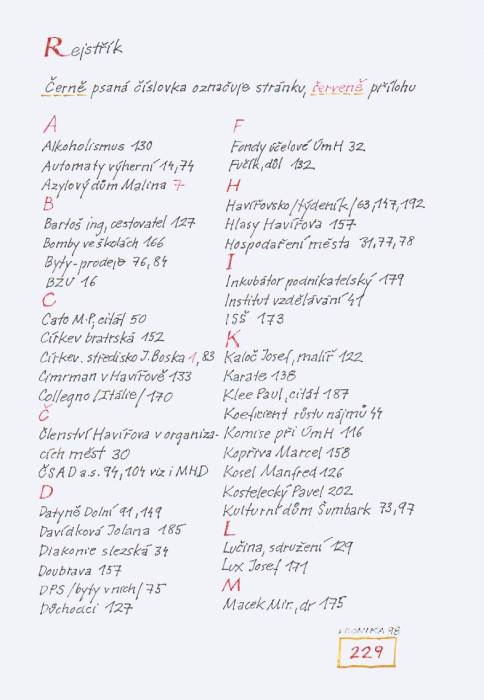 Rejstřík
Černě psaná číslovka označuje stránku, červeně přílohu
A
Alkoholismus 130
Automaty výherní 14,74
Azylový dům Malina 7
B
Bartoš ing, cestovatel 127
Bomby ve školách 166
Byty-prodej 76,84
BZU 16
C
Cato M.P., citát 50
Církev bratrská 152
Církev. středisko J. Boska 1, 83
Cimrman v Havířově 133
Collegno /Itálie/ 170
Č
Členství Havířova v organiza-
cích měst 30
ČSAD a.s. 94,104 viz i MHD
D
Datyně Dolní 91,149
Davídková Jolana 185
Diakonie slezská 34
Doubrava 157
DPS /byty v nich/ 75
Důchodci 127
F
Fondy účelové ÚmH 32
Fučík, důl 132
H
Havířovsko /týdeník/ 63,147,192
Hlasy Havířova 157
Hospodaření města 31,77,78
I
Inkubátor podnikatelský 179
Institut vzdělávání 41
ISŠ 173
K
Kaloč Josef, malíř 122
Karate 138
Klee Paul, citát 187
Koeficient růstu nájmů 44
Komise při ÚmH 116
Kopřiva Marcel 158
Kosel Manfred 126
Kostelecký Pavel 202
Kulturní dům Šumbark 73,97
L
Lučina, sdružení 129
Lux Josef 171
M
Macek Mir., dr 175
KRONIKA 98
229